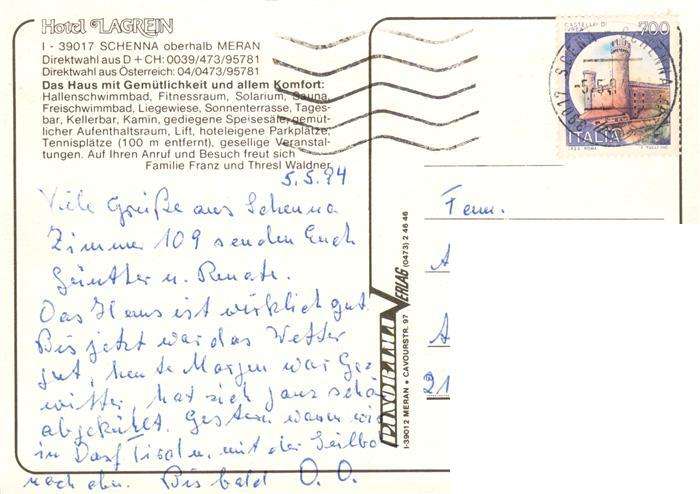 Hotel LAGREIN
I - 39017 SCHENNA oberhalb MERAN
Direktwahl aus D + CH: 0039/473/95781
Direktwahl aus Österreich: 04/0473/95781
Das Haus mit Gemütlichkeit und allem Komfort:
Hallenschwimmbad, Fitnessraum, Solarium, Sauna,
Freischwimmbad, Liegewiese, Sonnenterrasse, Tages-
bar, Kellerbar, Kamin, gediegene Speisesäle, gemüt-
licher Aufenthaltsraum, Lift, hoteleigene Parkplätze,
Tennisplätze (100 m entfernt), gesellige Veranstal-
tungen. Auf Ihren Anruf und Besuch freut sich
Familie Franz und Thresl Waldner
5.5.94
Viele Grüße aus Schenna
Zimmer 109 senden Euch
Günther u. Renate.
Das Haus ist wirklich gut
Bis jetzt war das Wetter
gut, heute Morgen war Ge-
witter, hat sich ganz schön
abgekühlt. Gestern waren wir
in Dorf Tirol u. mit der Seilba
nach oben. Bis bald O. O.
VERLAG (0473) 2 46 46
I-39012 MERAN • CAVOURSTR. 97
CASTELLO DI
700
ITALIA
Fam.
A
A
21